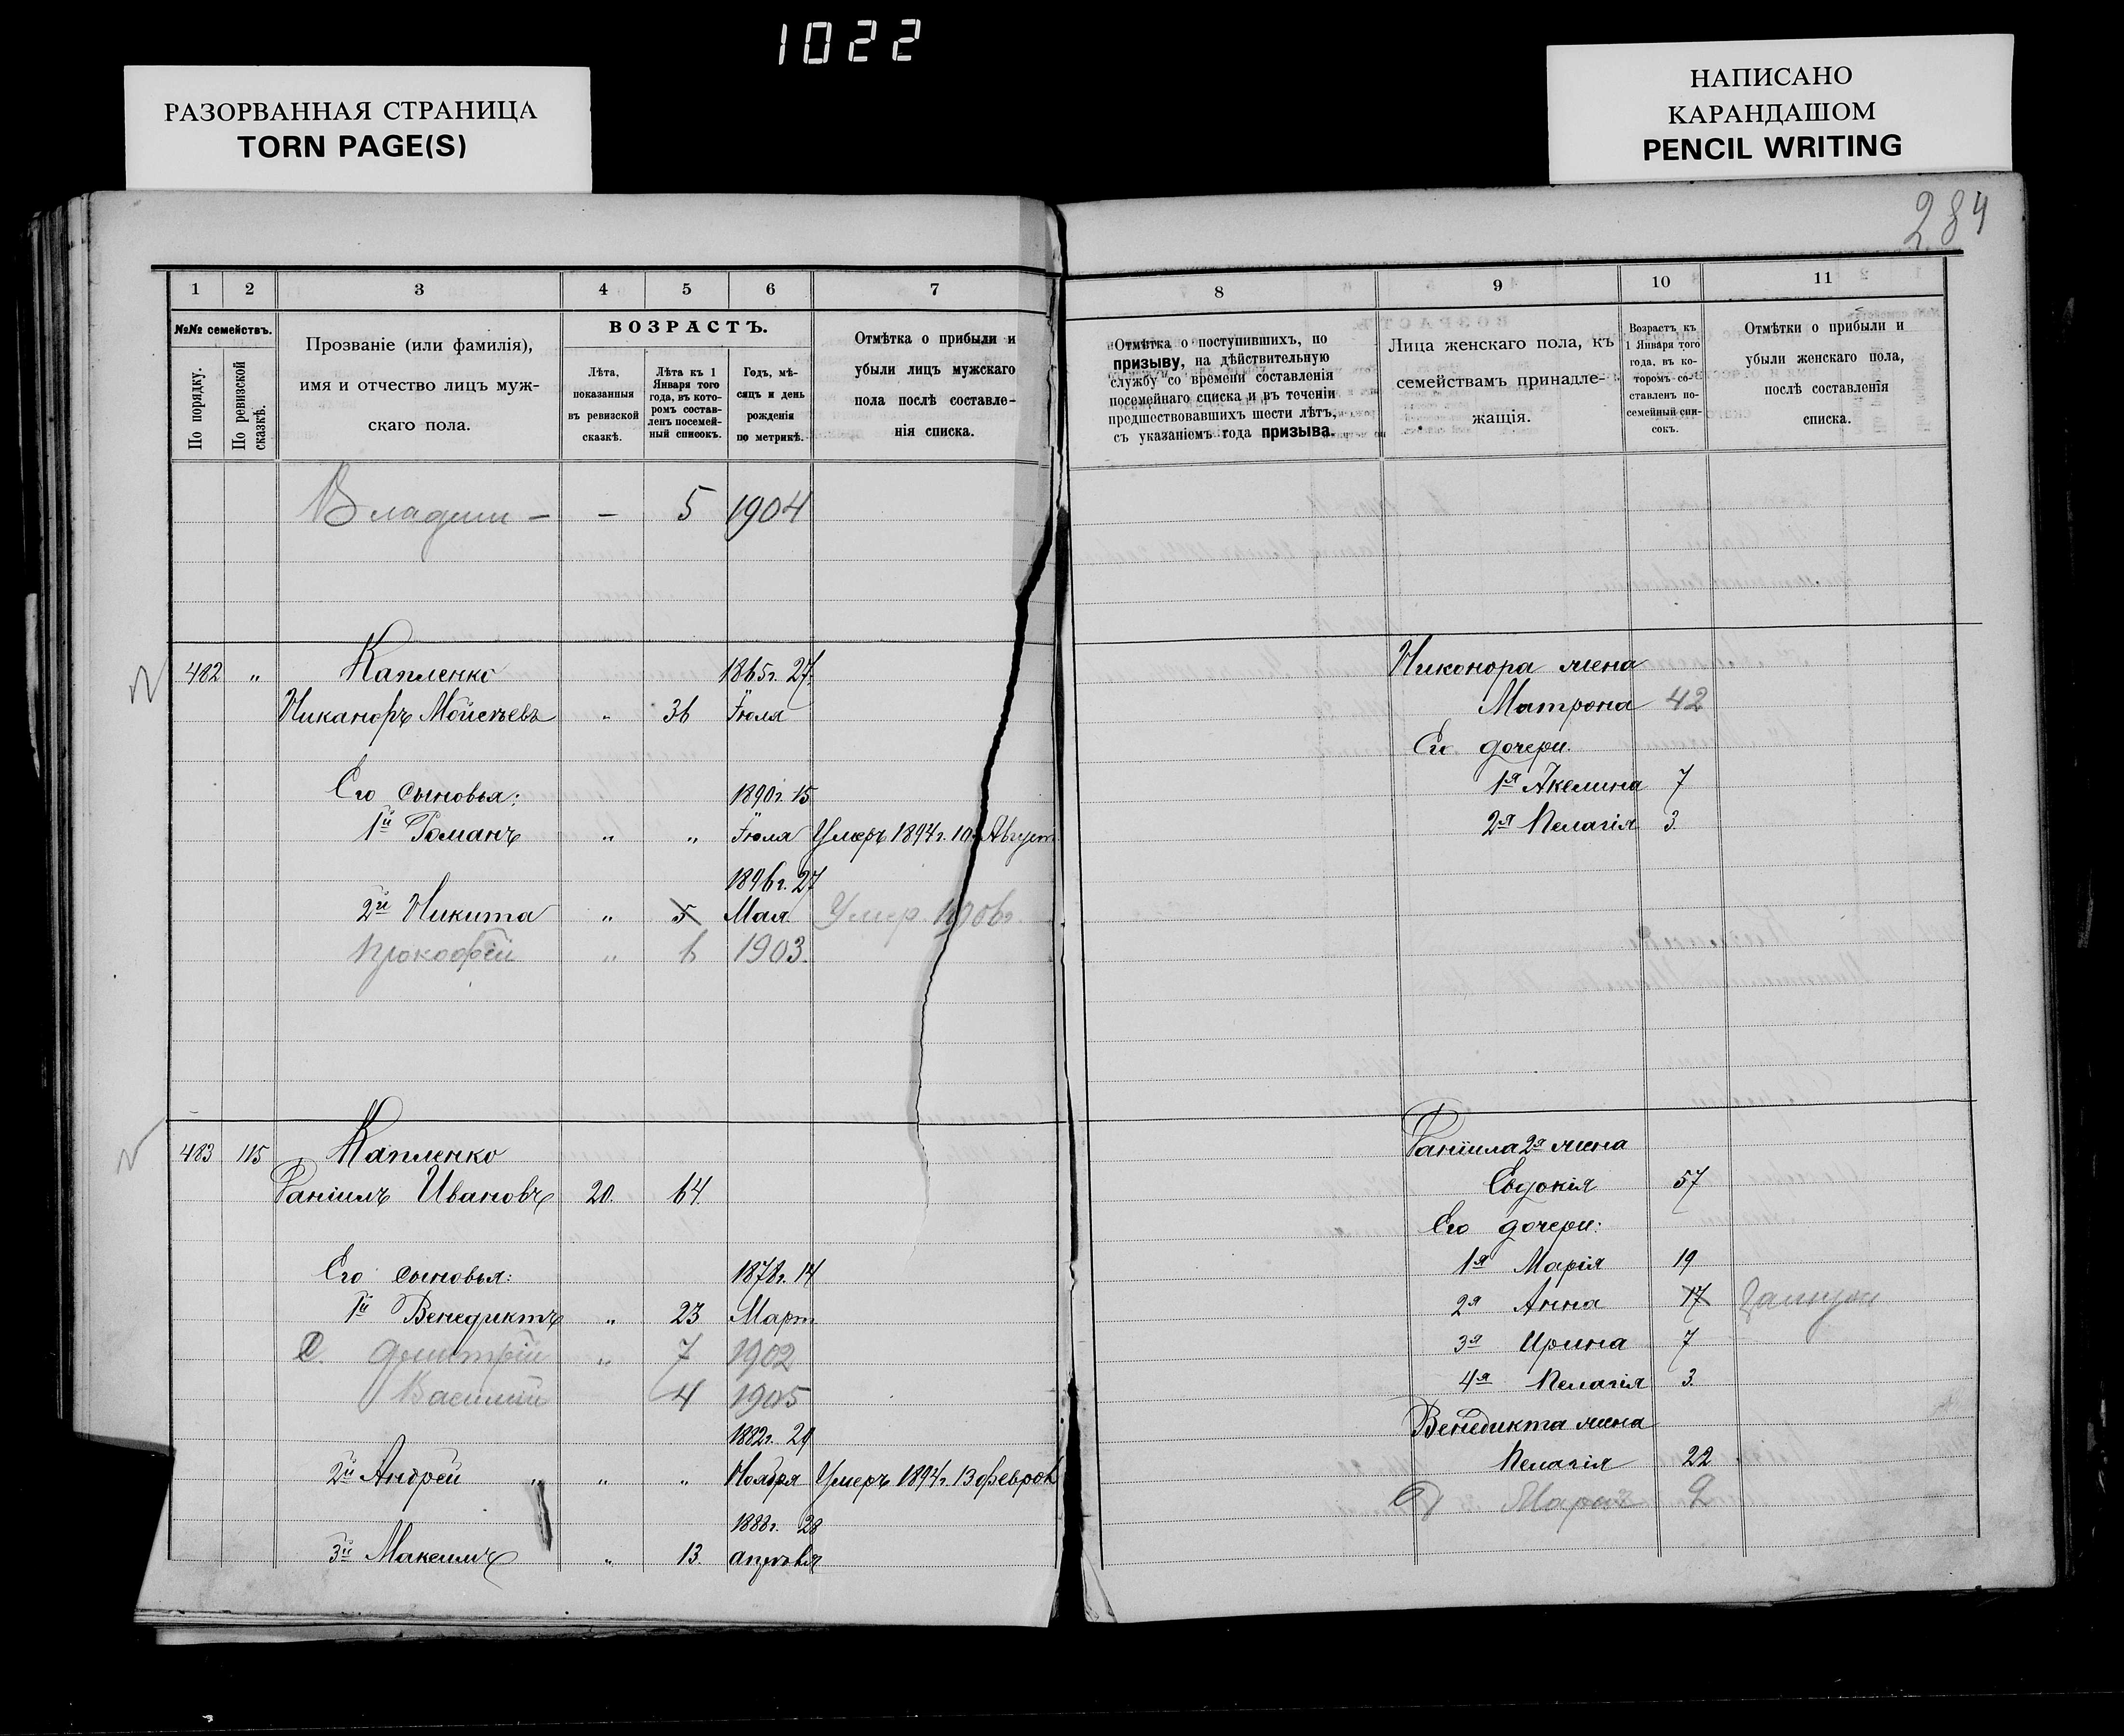 1022
РАЗОРВАННАЯ СТРАНИЦА
TORN PAGE(S)
НАПИСАНО
КАРАНДАШОМ
PENCIL WRITING
284
1 2 3 4 5 6 7
№№ семействъ.
По порядку.
По ревизской сказкѣ.
Прозваніе (или фамилія),
имя и отчество лицъ муж-
скаго пола.
ВОЗРАСТЪ.
Лѣта,
показанныя
въ ревизской
сказкѣ.
Лѣта къ 1
Января того
года, въ кото-
ромъ состав-
ленъ посемей-
ный списокъ.
Годъ, мѣ-
сяцъ и день
рожденія
по метрикѣ.
Отмѣтка о прибыли и
убыли лицъ мужскаго
пола послѣ составле-
нія списка.
— — 5 1904
482 „ Капленко 1865г. 27.
Никаноръ Мойсѣевъ „ 36 Іюля
Его сыновья: 1890г. 15
1й Романъ „ „ Іюля Умеръ 1894г. 10 Август
1896г. 27
2й Никита „ 5 Мая Умер. 1906г.
Прокофій „ 6 1903.
483 115 Капленко
Даніилъ Ивановъ 20. 64.
Его сыновья: 1878г. 14
1й Венедиктъ „ 23 Март
Димитрій „ 7 1902
Василий 4 1905
1882г. 29
2й Андрей „ „ „ Ноября Умеръ 1894г. 13 феврал
1888г. 28
3й Максимъ „ 13. апрѣля
8 9 10 11
Отмѣтка о поступившихъ, по
призыву, на дѣйствительную
службу со времени составленія
посемейнаго списка и въ теченіи
предшествовавшихъ шести лѣтъ,
съ указаніемъ года призыва.
Лица женскаго пола, къ
семействамъ принадле-
жащія.
Возрастъ къ
1 Января того
года, въ ко-
торомъ со-
ставленъ по-
семейный спи-
сокъ.
Отмѣтки о прибыли и
убыли женскаго пола,
послѣ составленія
списка.
Никонора жена
Матрона 42
Его дочери.
1я Акелина 7
2я Пелагія 3.
Даніила 2я жена
Евдокія 57
Его дочери:
1я Марія 19
2я Анна 17
3я Ирина 7
4я Пелагія 3.
Венедикта жена
Пелагія 22
Мария 2